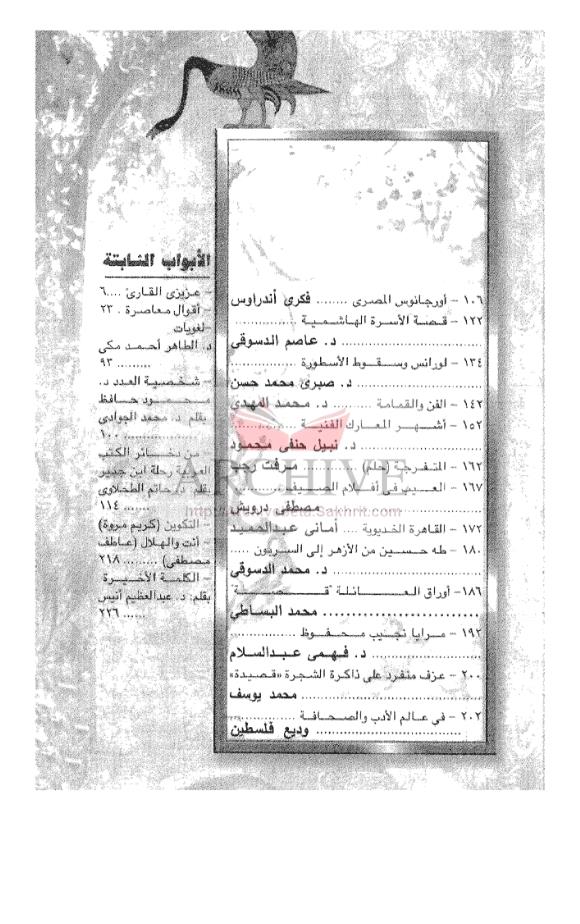 ١٠٦ - أورجانوس المصرى ........ فكرى أندراوس
١٢٢ - قصة الأسرة الهاشمية ................
................................ د. عاصم الدسوقى
١٣٤ - لورانس وسقوط الأسطورة ................
................................ د. صبرى محمد حسن
١٤٢ - الفن والقمامة .......... د. محمد المهدى
١٥٢ - أشهر المعارك الفنية ................
................................ د. نبيل حنفى محمود
١٦٢ - المتفرجة (حلم) ............. مرفت رجب
١٦٧ - العيب فى أفلام الصيف ................
................................ مصطفى درويش
١٧٢ - القاهرة الخديوية .... أمانى عبدالحميد
١٨٠ - طه حسين من الأزهر إلى السربون .....
................................ د. محمد الدسوقى
١٨٦ - أوراق العائلة "قصة"
................................ محمد البساطى
١٩٢ - مرايا نجيب محفوظ ................
................................ د. فهمى عبدالسلام
٢٠٠ - عزف منفرد على ذاكرة الشجرة «قصيدة»
................................ محمد يوسف
٢٠٢ - في عالم الأدب والصحافة ................
................................ وديع فلسطين
الأبواب الثابتة
- عزيزى القارئ .... ٦
- أقوال معاصرة . ٢٣
- لغويات
د. الطاهر أحمد مكى
......... ٩٣
- شخصية العدد د.
محمود حافظ
بقلم د. محمد الجوادى
....... ١٠٠
- من ذخائر الكتب
العربية رحلة ابن جبير
بقلم د. حاتم الطحلاوى
...... ١١٤
- التكوين (كريم مروة)
- أنت والهلال (عاطف
مصطفى) ......... ٢١٨
- الكلمة الأخيرة
بقلم: د. عبدالعظيم أنيس
...... ٢٢٦
ARCHIVE
Sakhrit.com